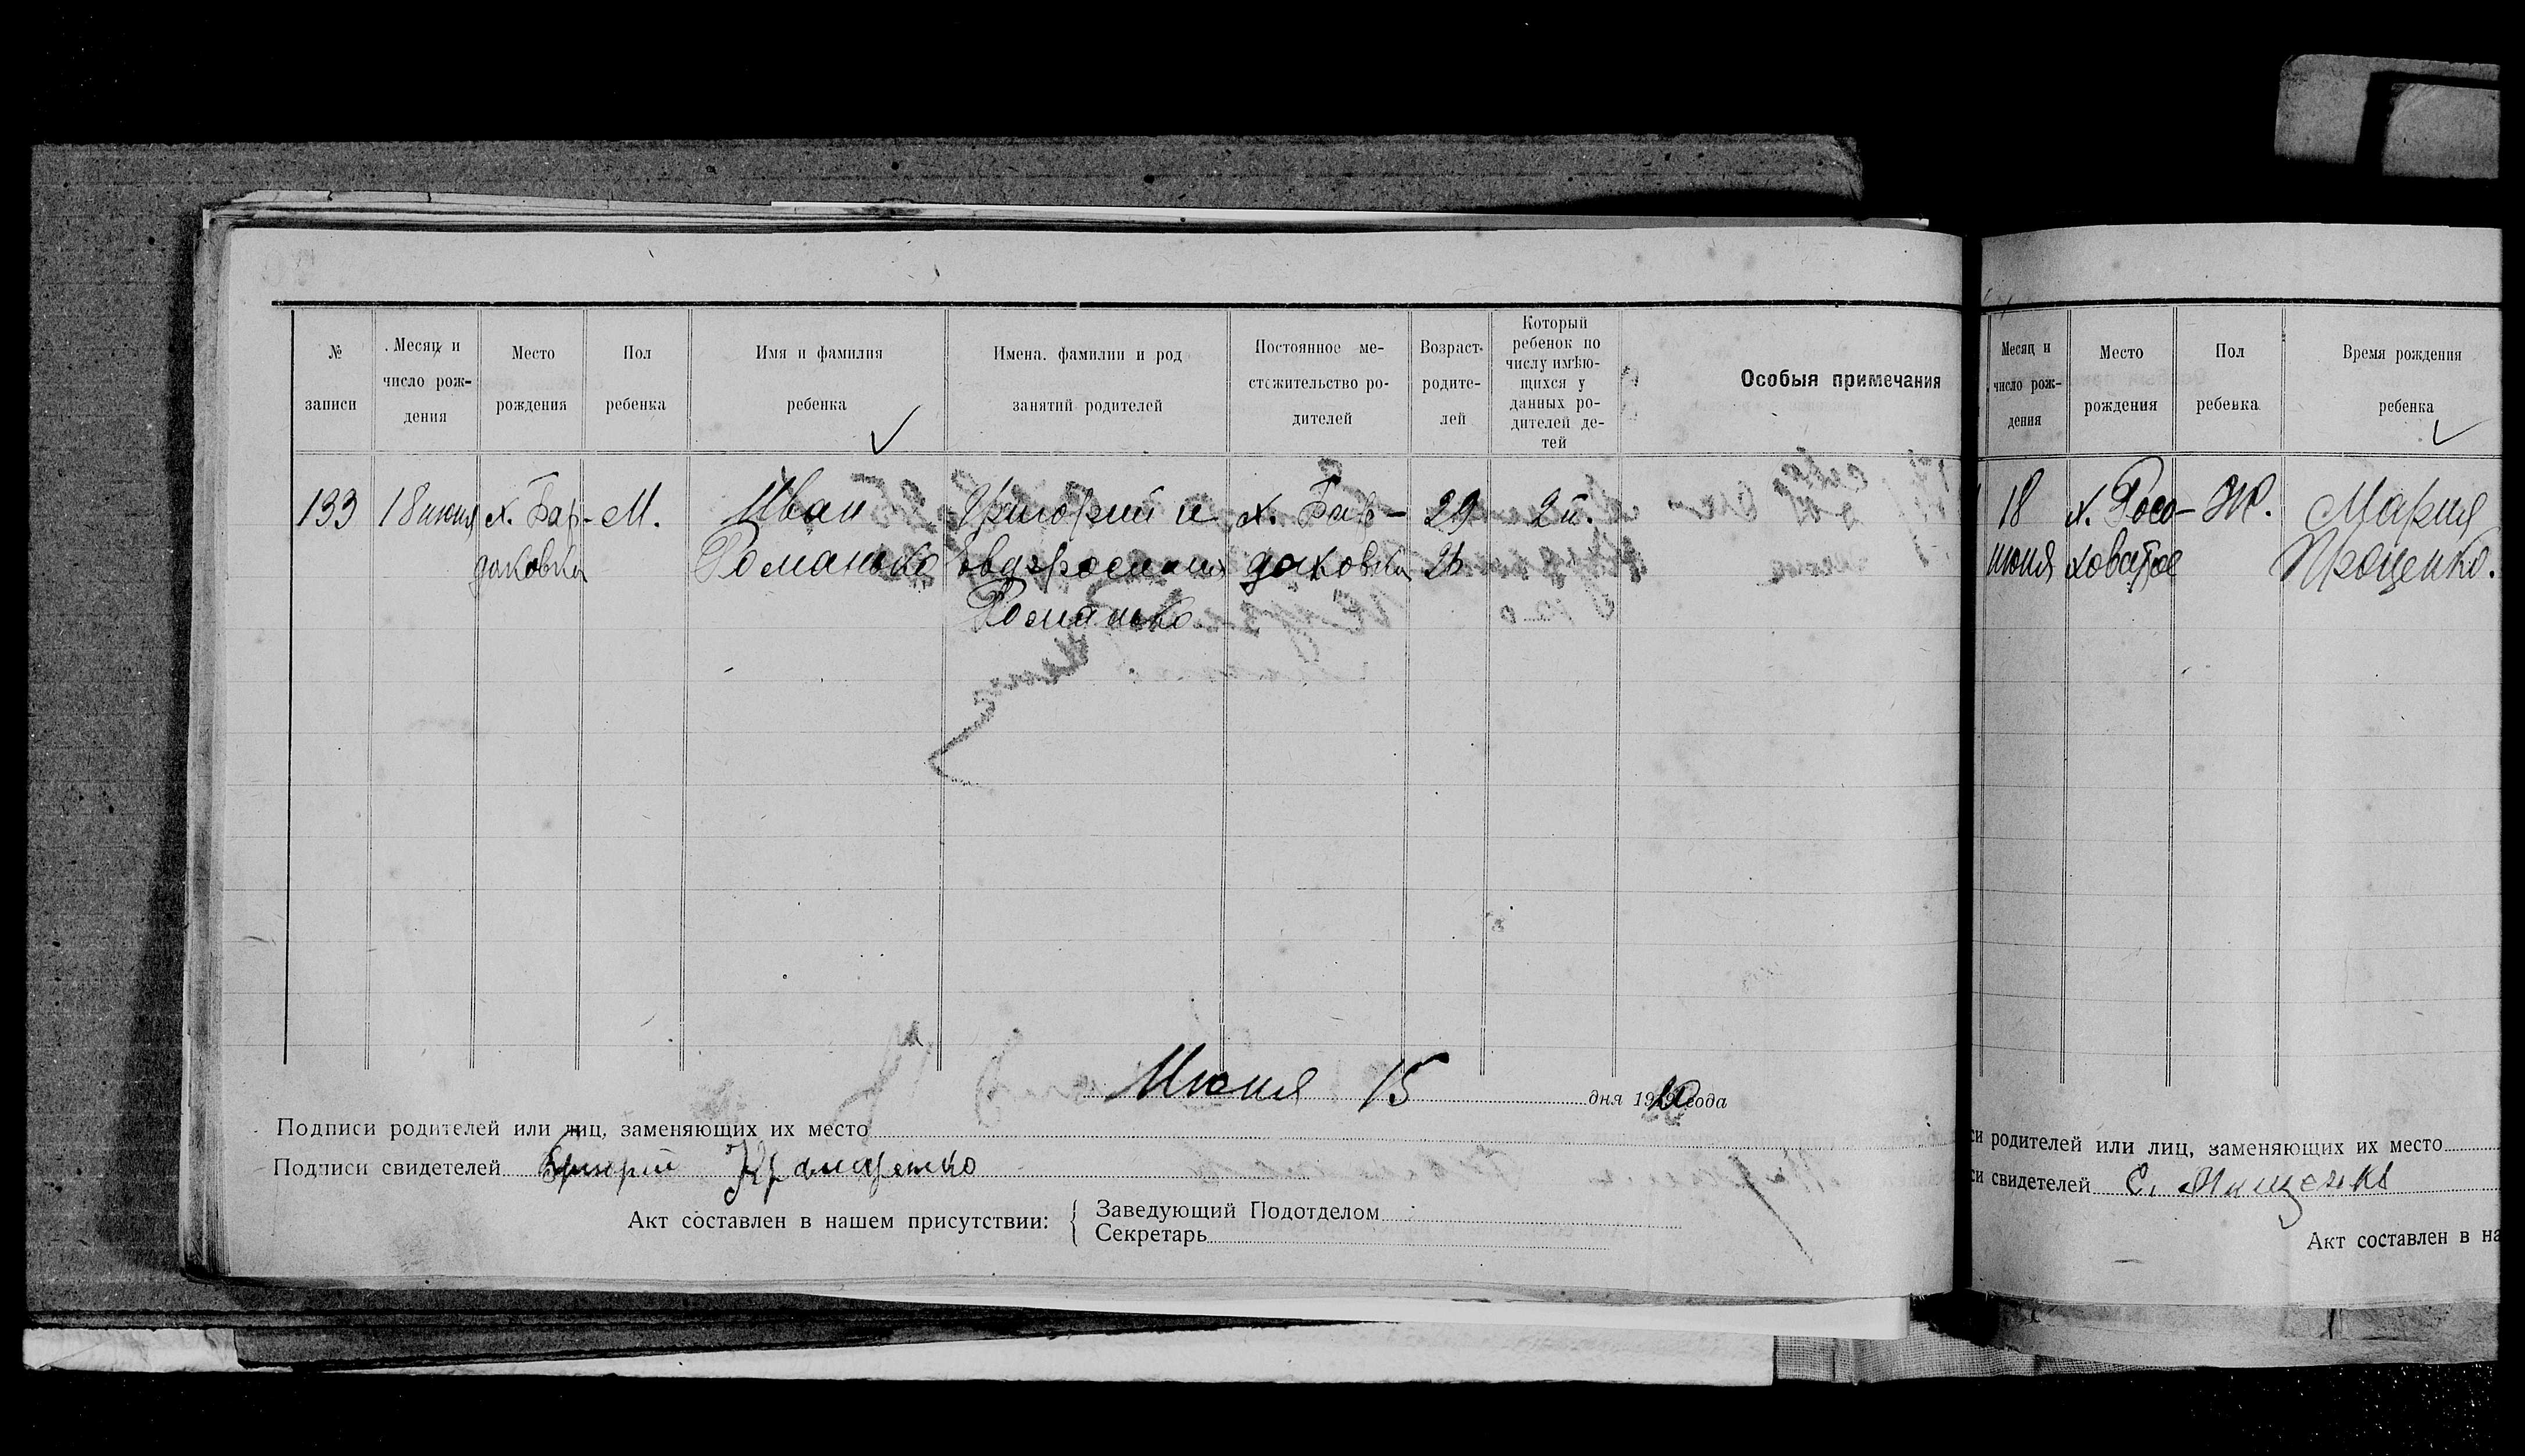 № записи
Месяц и число рождения
Место рождения
Пол ребенка
Имя и фамилия ребенка
Имена. фамилии и род занятий родителей
Постоянное местожительство родителей
Возраст родителей
Который ребенок по числу имѣющихся у данных родителей детей
Особыя примечания
133 18 июня х. Бар- М. Иван Григорий и х. Бар- 29 2й.
даковка Романько Евдросиния даковка 26
Романько
Июня 15 дня 1920 года
Подписи родителей или лиц, заменяющих их место
Подписи свидетелей Григорий Крамаренко
Акт составлен в нашем присутствии: { Заведующий Подотделом
Секретарь
Месяц и число рождения
Место рождения
Пол ребенка
Время рождения ребенка
18 х. Росо- Ж. Мария
июня ховатое Проценко.
си родителей или лиц, заменяющих их место
си свидетелей С.
Акт составлен в на